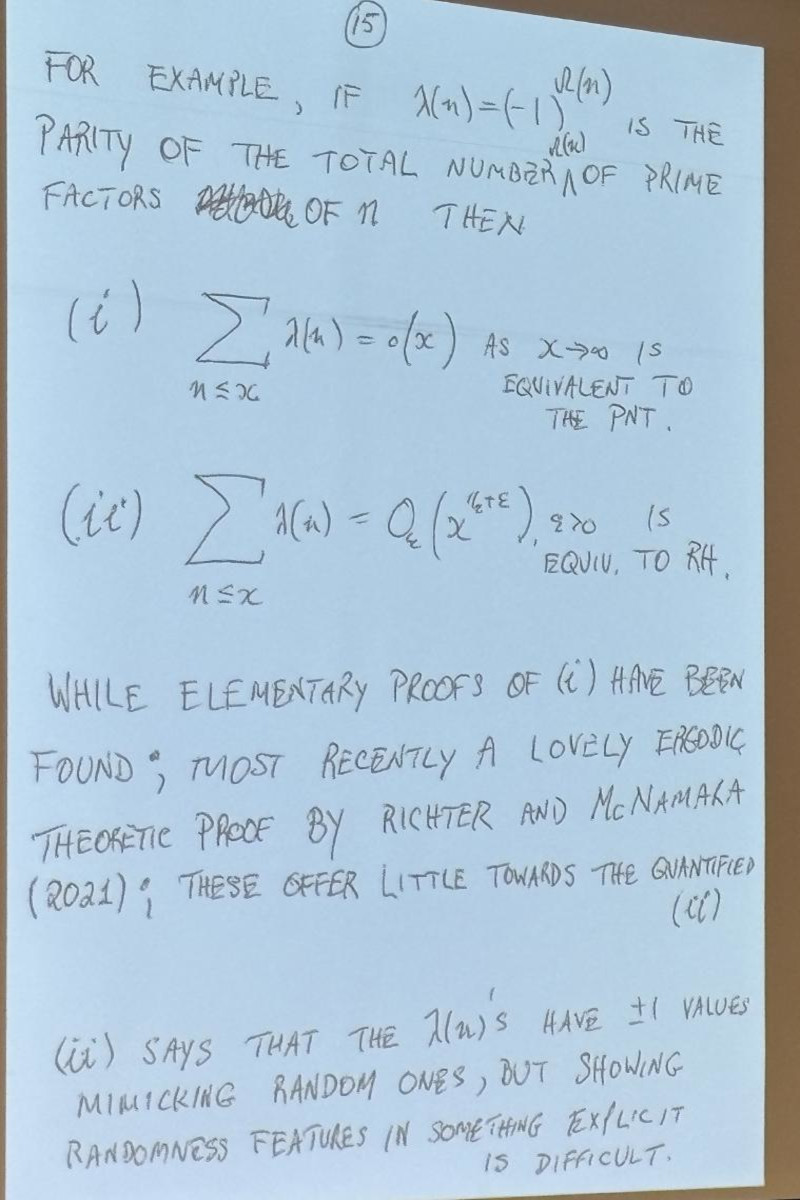 15
FOR EXAMPLE, IF λ(n)=(-1)^Ω(n) IS THE
PARITY OF THE TOTAL NUMBER Ω(n) OF PRIME
FACTORS OF n THEN
(i) ∑ λ(n) = o(x) AS x→∞ IS
n≤x EQUIVALENT TO
THE PNT.
(ii) ∑ λ(n) = O_ε(x^{1/2+ε}), ε>0 IS
n≤x EQUIV. TO RH.
WHILE ELEMENTARY PROOFS OF (i) HAVE BEEN
FOUND; MOST RECENTLY A LOVELY ERGODIC
THEORETIC PROOF BY RICHTER AND McNAMARA
(2021); THESE OFFER LITTLE TOWARDS THE QUANTIFIED
(ii)
(ii) SAYS THAT THE λ(n)'s HAVE ±1 VALUES
MIMICKING RANDOM ONES, BUT SHOWING
RANDOMNESS FEATURES IN SOMETHING EXPLICIT
IS DIFFICULT.